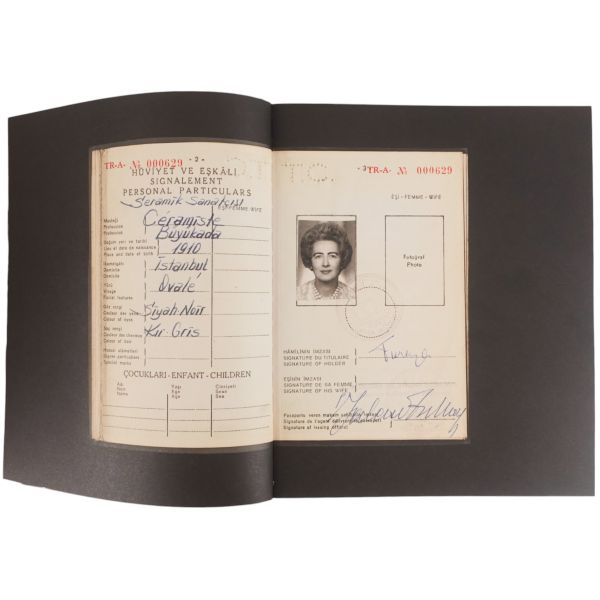 TR-A- № 000629
- 2 -
HÜVİYET VE EŞKÂLİ
SIGNALEMENT
PERSONAL PARTICULARS
Seramik Sanatçısı
EŞİ-FEMME-WIFE
Mesleği
Profession
Profession
Céramiste
Büyükada
Doğum yeri ve tarihi
Lieu et date de naissance
Place and date of birth
1910
İkametgâhı
Domicile
Domicile
İstanbul
Yüzü
Visage
Facial features
Ovale
Göz rengi
Couleur des yeux
Colour of eyes
Siyah Noir
Saç rengi
Couleur des cheveux
Colour of hair
Kır Gris
Hususi alâmetleri
Signes particuliers
Special marks
ÇOCUKLARI - ENFANT - CHILDREN
Adı
Nom
Name
Yaşı
Age
Age
Cinsiyeti
Sexe
Sex
- 3 -
TR-A- № 000629
T.C.
EŞİ - FEMME - WIFE
Fotoğraf
Photo
HÂMİLİNİN İMZASI
SIGNATURE DU TITULAIRE
SIGNATURE OF HOLDER
Füreya
EŞİNİN İMZASI
SIGNATURE DE SA FEMME
SIGNATURE OF HIS WIFE
Pasaportu veren makam
Signature de l'agent délivrant
Signature of issuing official